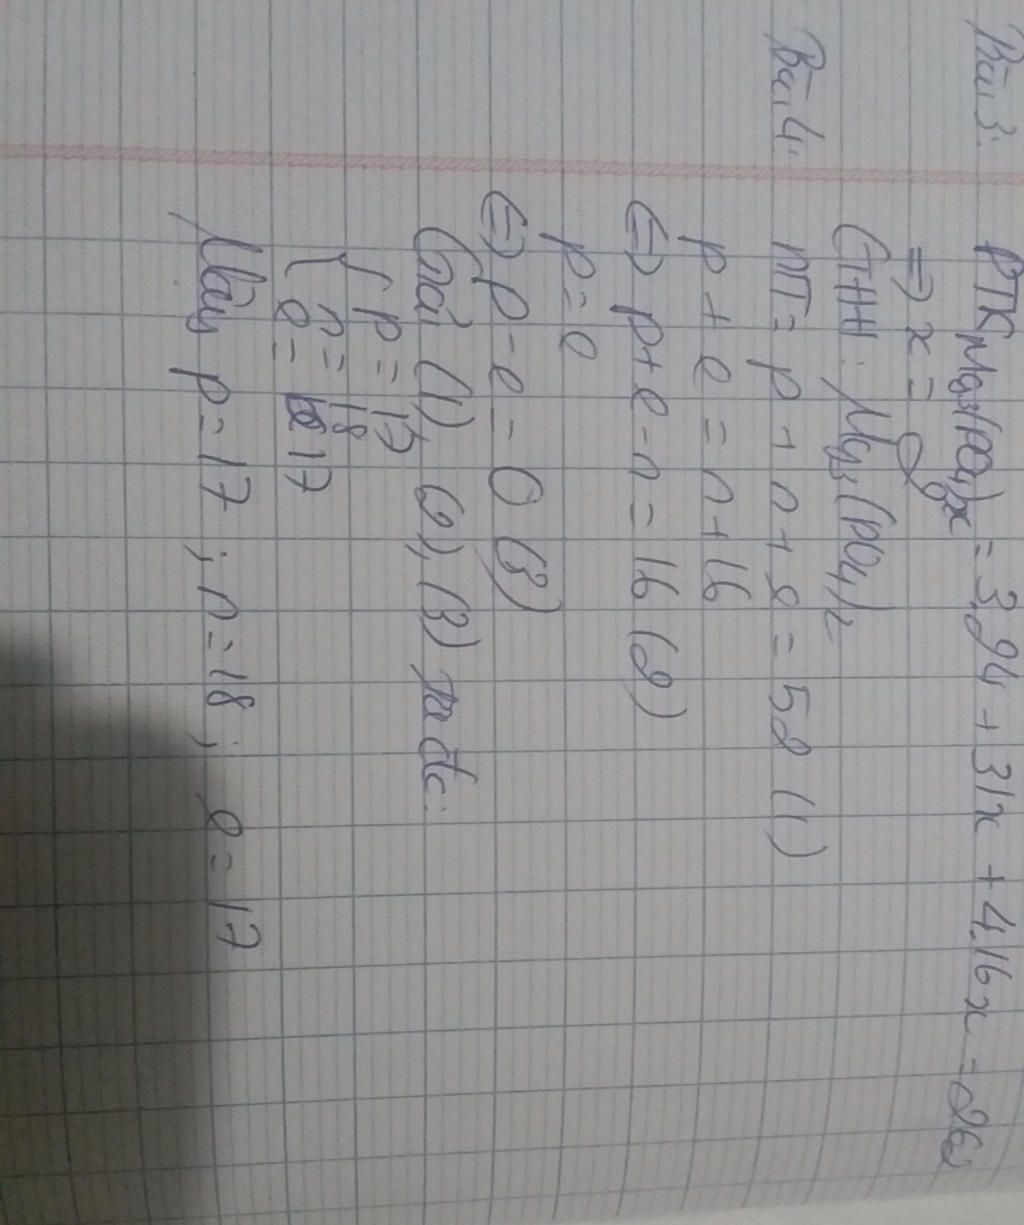 Bài 3: PTK Mg3(PO4)x = 3.24 + 31x + 4.16x = 262
=> x = 2
CTHH: Mg3(PO4)2
Bài 4: NT = p + n + e = 52 (1)
p + e = n + 16
<=> p + e - n = 16 (2)
p = e
<=> p - e = 0 (3)
Giải (1), (2), (3) ta đc:
{ p = 17
n = 18
e = 17
Vậy p = 17 ; n = 18 ; e = 17